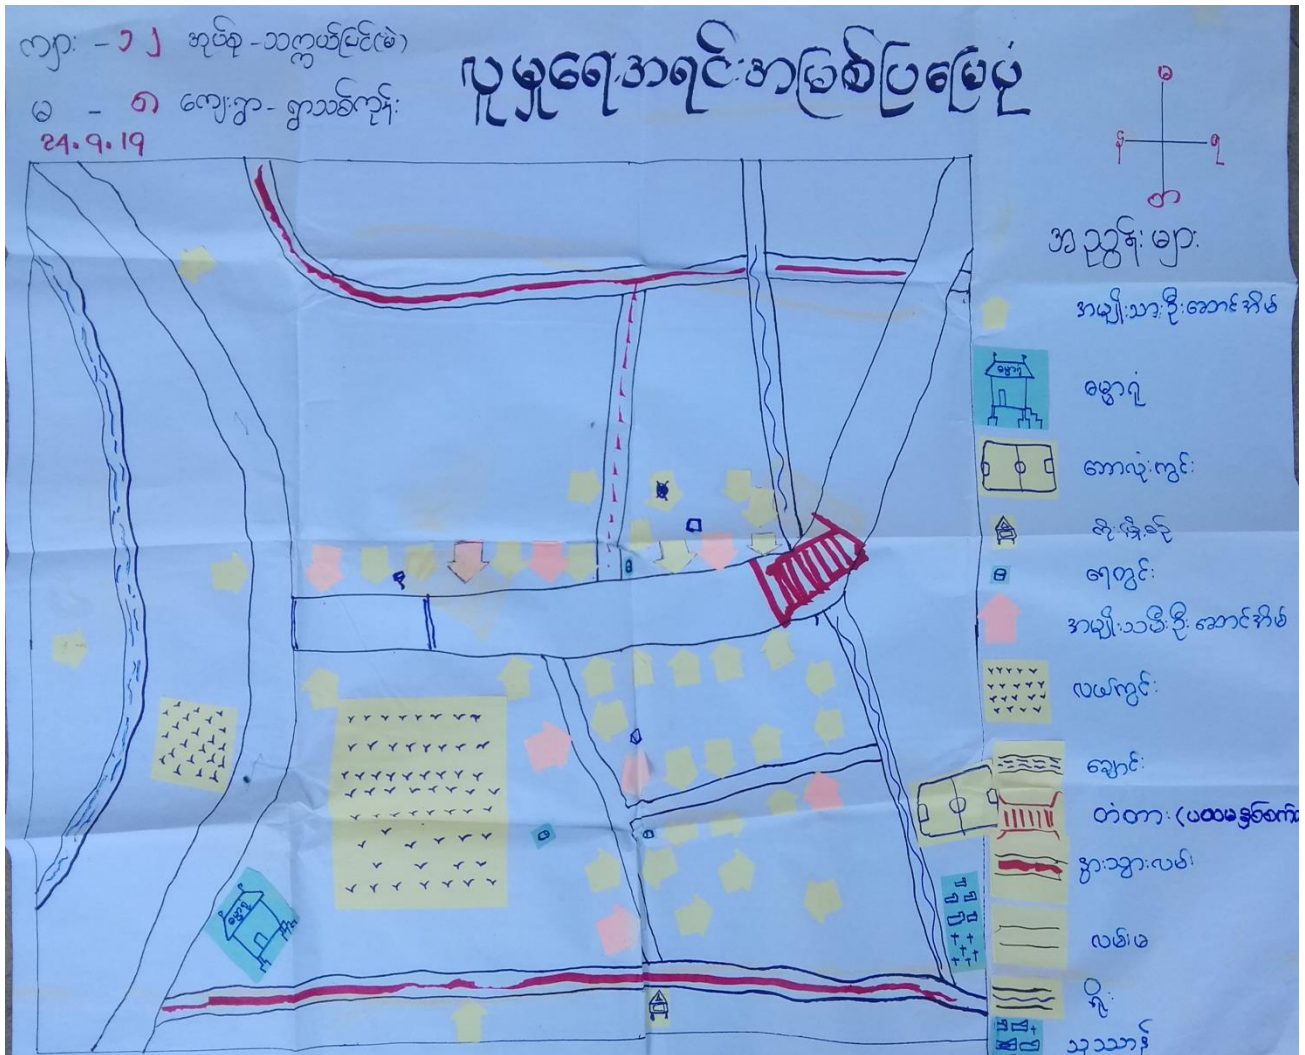 ကျား - ၁၂ အုပ်စု - သက္ကယ်ပြင်(မဲ)
မ - ၈ ကျေးရွာ - ရွာသစ်ကုန်း
24.9.19
လူမှုရေးအရင်းအမြစ်ပြမြေပုံ
မ
န
ရ
တ
အညွှန်းများ
အမျိုးသားဦးဆောင်အိမ်
ဓမ္မာရုံ
ဘောလုံးကွင်း
ရေတွင်း
အမျိုးသမီးဦးဆောင်အိမ်
လယ်ကွင်း
ချောင်း
တံတား (ပထမနှစ်စက်
နွားသွားလမ်း
လမ်းမ
ရိုး
သုသာန်